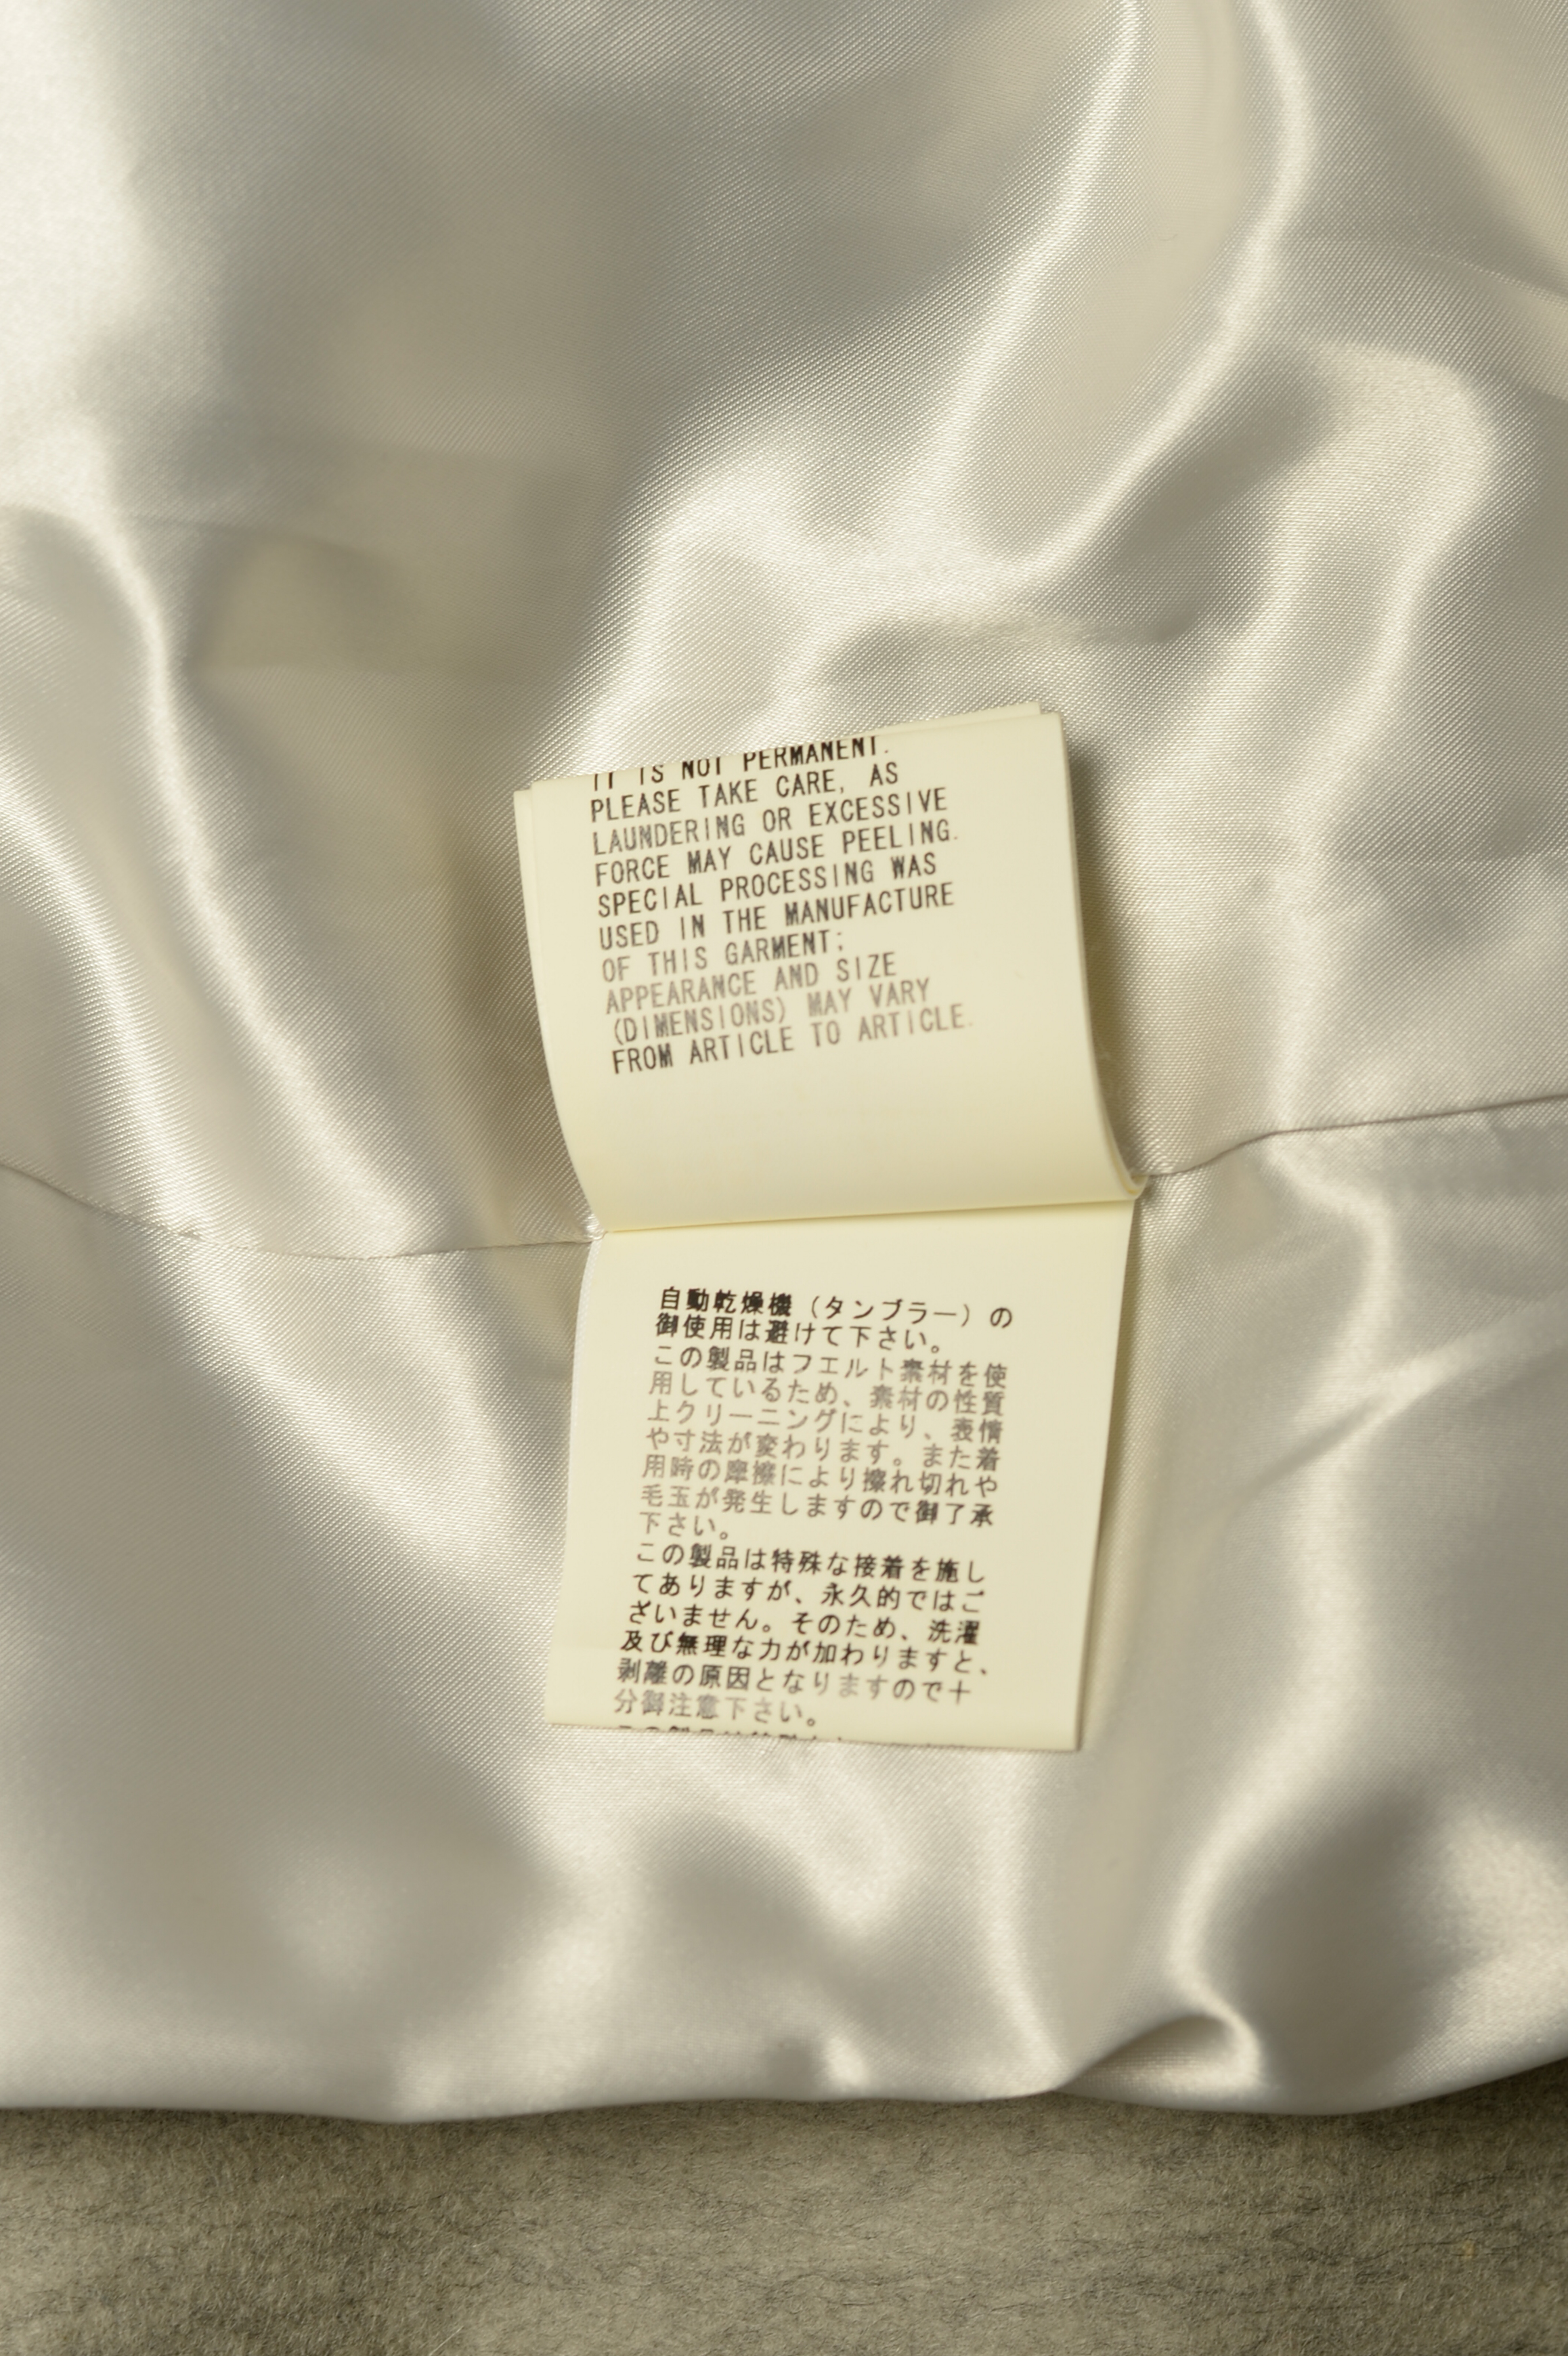 IT IS NOT PERMANENT.
PLEASE TAKE CARE, AS
LAUNDERING OR EXCESSIVE
FORCE MAY CAUSE PEELING.
SPECIAL PROCESSING WAS
USED IN THE MANUFACTURE
OF THIS GARMENT;
APPEARANCE AND SIZE
(DIMENSIONS) MAY VARY
FROM ARTICLE TO ARTICLE.
自動乾燥機（タンブラー）の
御使用は避けて下さい。
この製品はフエルト素材を使
用しているため、素材の性質
上クリーニングにより、表情
や寸法が変わります。また着
用時の摩擦により擦れ切れや
毛玉が発生しますので御了承
下さい。
この製品は特殊な接着を施し
てありますが、永久的ではご
ざいません。そのため、洗濯
及び無理な力が加わりますと、
剥離の原因となりますので十
分御注意下さい。